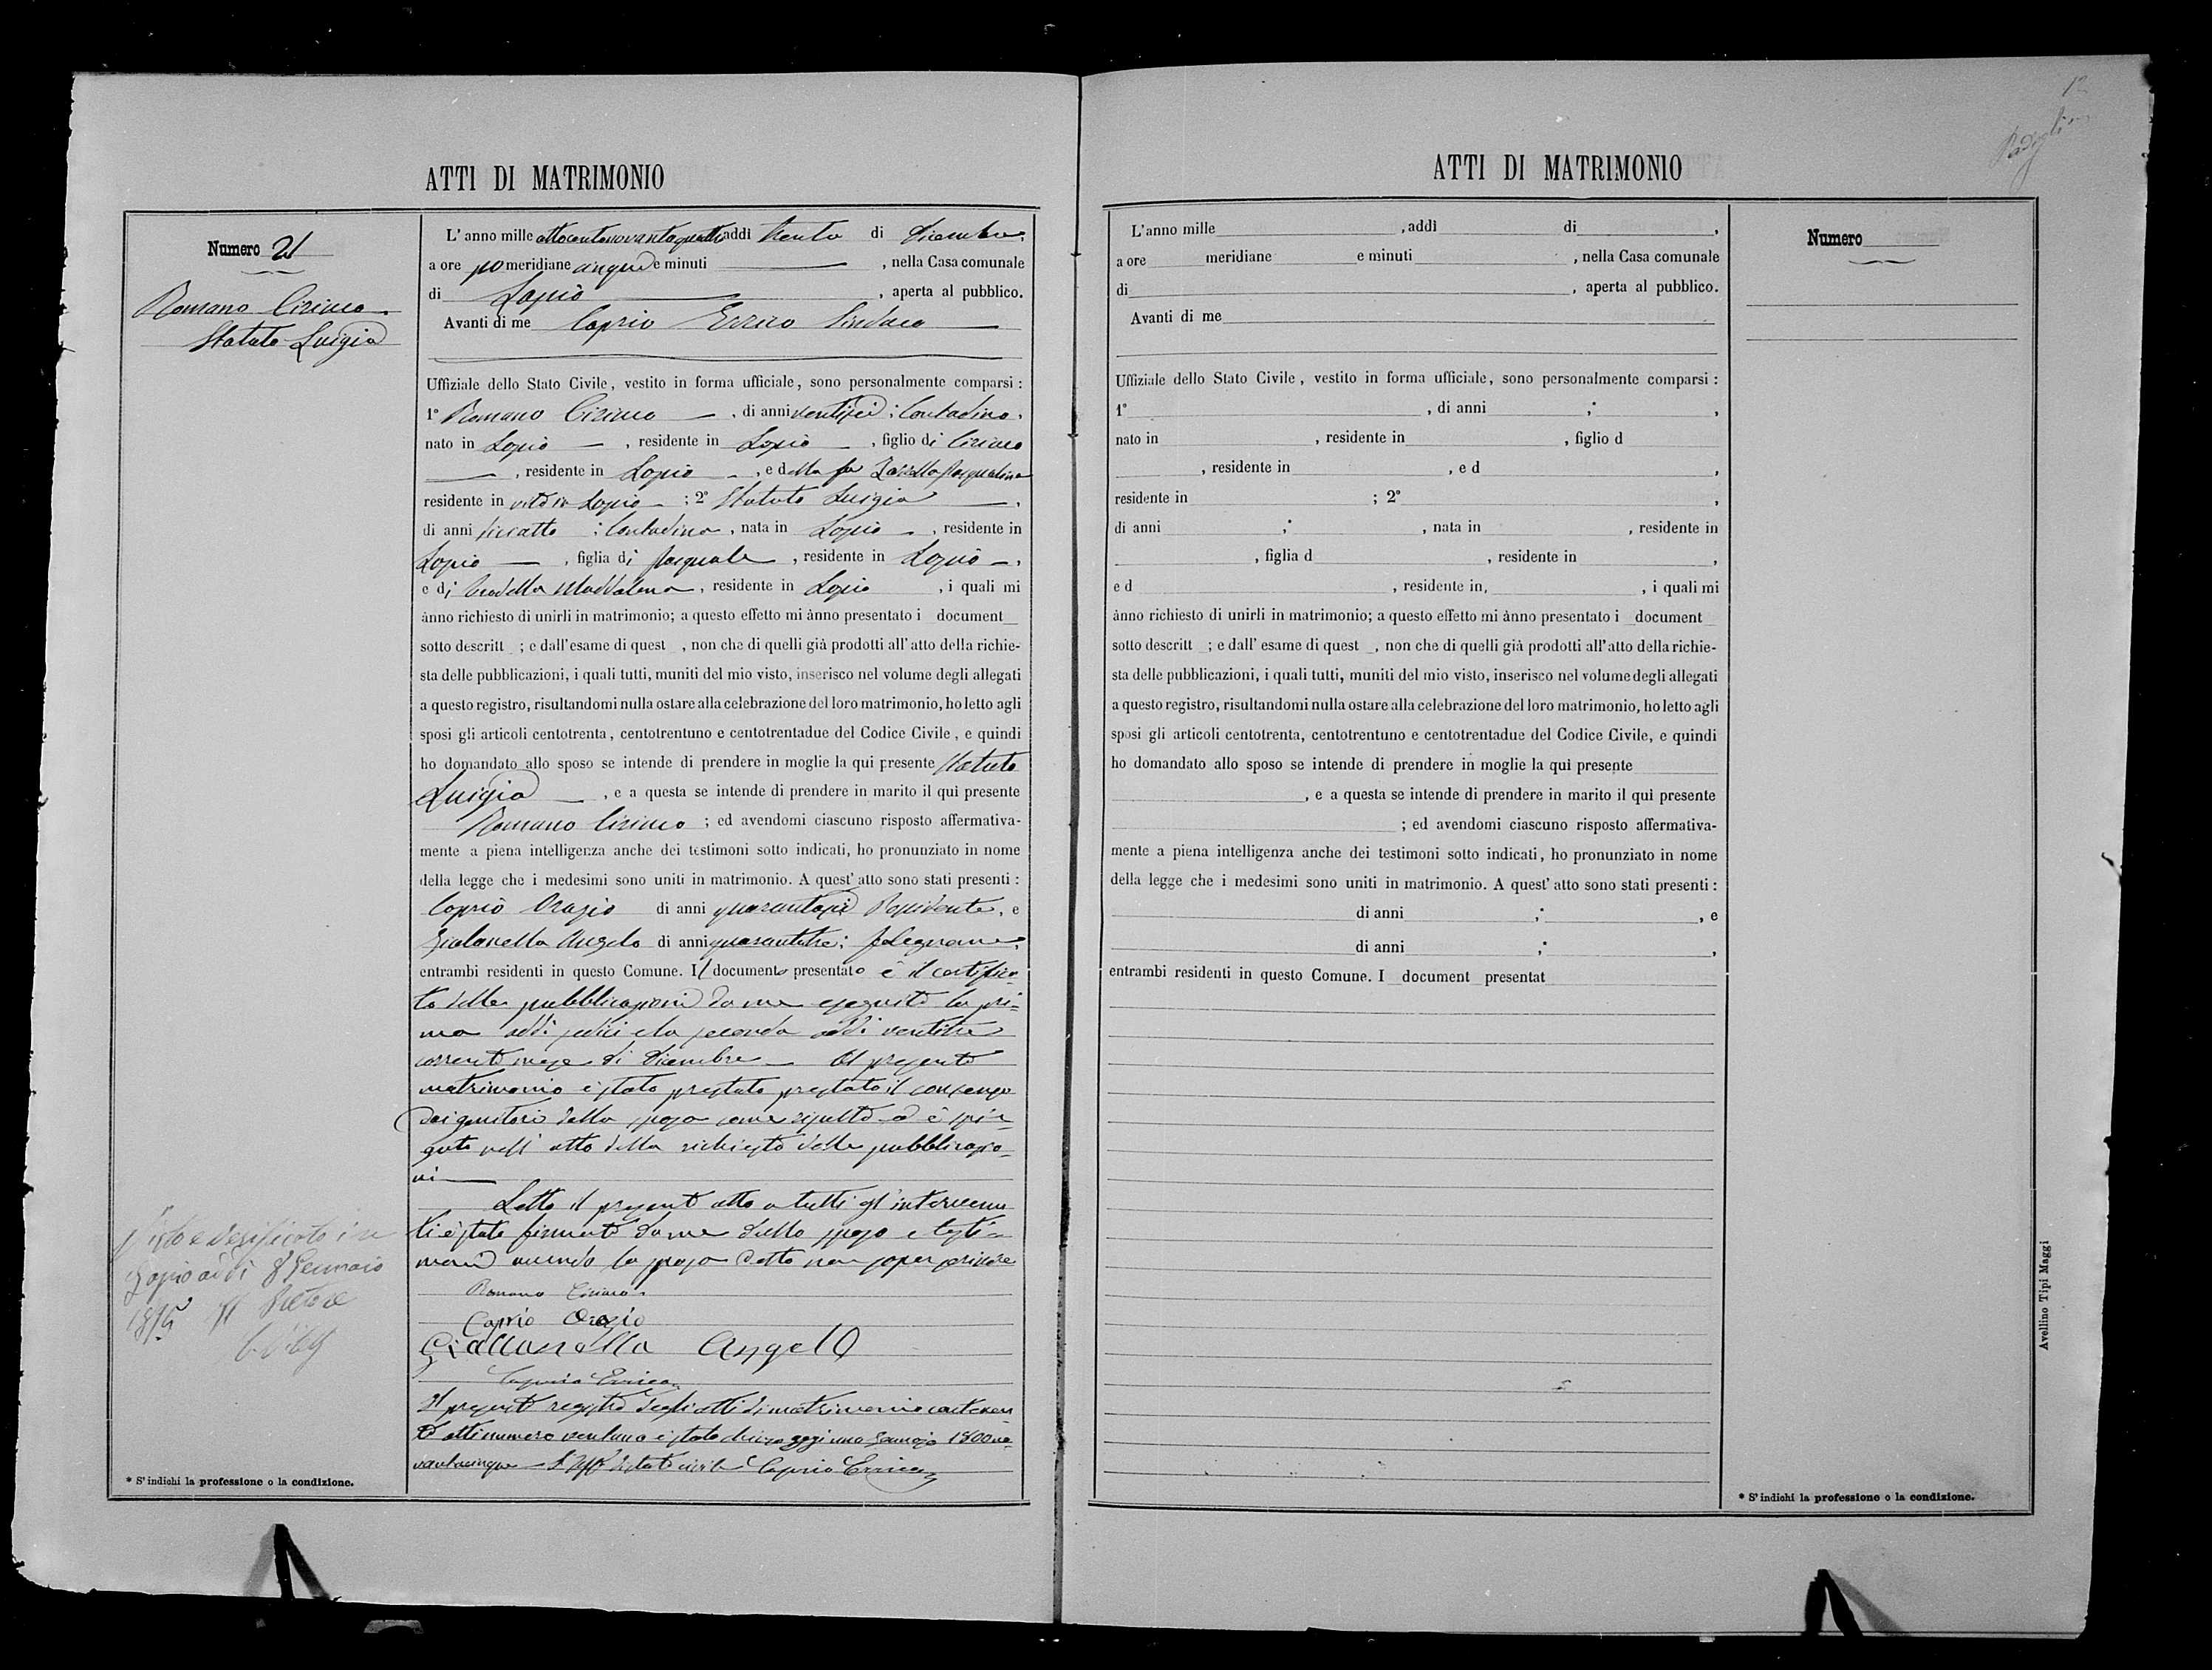 ATTI DI MATRIMONIO
Numero 21
Romano Ciriaco
Statuto Luigia
L'anno mille ottocentonovantaquattro addì trenta di Dicembre,
a ore pomeridiane cinque e minuti, nella Casa comunale
di Lapio, aperta al pubblico.
Avanti di me Caprio Errico Sindaco
Uffiziale dello Stato Civile, vestito in forma ufficiale, sono personalmente comparsi:
1° Romano Ciriaco, di anni ventisei; Contadino,
nato in Lapio, residente in Lapio, figlio di Ciriaco
, residente in Lapio, e della fu Pasqualina
residente in vita in Lapio; 2° Statuto Luigia,
di anni diciotto; Contadina, nata in Lapio, residente in
Lapio, figlia di Pasquale, residente in Lapio,
e di Maddalena, residente in Lapio, i quali mi
ànno richiesto di unirli in matrimonio; a questo effetto mi ànno presentato i document
sotto descritt ; e dall'esame di quest , non che di quelli già prodotti all'atto della richie-
sta delle pubblicazioni, i quali tutti, muniti del mio visto, inserisco nel volume degli allegati
a questo registro, risultandomi nulla ostare alla celebrazione del loro matrimonio, ho letto agli
sposi gli articoli centotrenta, centotrentuno e centotrentadue del Codice Civile, e quindi
ho domandato allo sposo se intende di prendere in moglie la qui presente Statuto
Luigia, e a questa se intende di prendere in marito il qui presente
Romano Ciriaco; ed avendomi ciascuno risposto affermativa-
mente a piena intelligenza anche dei testimoni sotto indicati, ho pronunziato in nome
della legge che i medesimi sono uniti in matrimonio. A quest'atto sono stati presenti:
Caprio Orazio di anni quarantasei Possidente, e
Giallonella Angelo di anni quarantatre; falegname,
entrambi residenti in questo Comune. Il documento presentato è il certifica-
to delle pubblicazioni da me eseguite la pri-
ma addì sedici e la seconda addì ventitre
corrente mese di Dicembre — Al presente
matrimonio è stato prestato prestato il consenso
dai genitori della sposa come risulta ed è spie-
gato nell'atto della richiesta delle pubblicazio-
ni
Letto il presente atto a tutti gl'intervenu
ti è stato firmato da me dallo sposo e testi-
moni avendo la sposa detto non saper scrivere
Romano Ciriaco
Caprio Orazio
Giallonella Angelo
Caprio Errico
Il presente registro degli atti di matrimonio contenen
te atti numero ventuno è stato chiuso oggi uno Gennaio 1800 no
vantacinque L'Uff. di stato civile Caprio Errico
Visto e verificato in
Lapio addì 8 Gennaio
1895 Il Pretore
* S'indichi la professione o la condizione.
ATTI DI MATRIMONIO
12
L'anno mille , addì di ,
a ore meridiane e minuti , nella Casa comunale
di , aperta al pubblico.
Avanti di me
Uffiziale dello Stato Civile, vestito in forma ufficiale, sono personalmente comparsi:
1° , di anni ;* ,
nato in , residente in , figlio d
, residente in , e d ,
residente in ; 2° ,
di anni ;* , nata in , residente in
, figlia d , residente in ,
e d , residente in, , i quali mi
ànno richiesto di unirli in matrimonio; a questo effetto mi ànno presentato i document
sotto descritt ; e dall'esame di quest , non che di quelli già prodotti all'atto della richie-
sta delle pubblicazioni, i quali tutti, muniti del mio visto, inserisco nel volume degli allegati
a questo registro, risultandomi nulla ostare alla celebrazione del loro matrimonio, ho letto agli
sposi gli articoli centotrenta, centotrentuno e centotrentadue del Codice Civile, e quindi
ho domandato allo sposo se intende di prendere in moglie la qui presente
, e a questa se intende di prendere in marito il qui presente
; ed avendomi ciascuno risposto affermativa-
mente a piena intelligenza anche dei testimoni sotto indicati, ho pronunziato in nome
della legge che i medesimi sono uniti in matrimonio. A quest'atto sono stati presenti:
di anni ;* , e
di anni ;* ,
entrambi residenti in questo Comune. I document presentat
Numero
* S'indichi la professione o la condizione.
Avellino Tipi Maggi